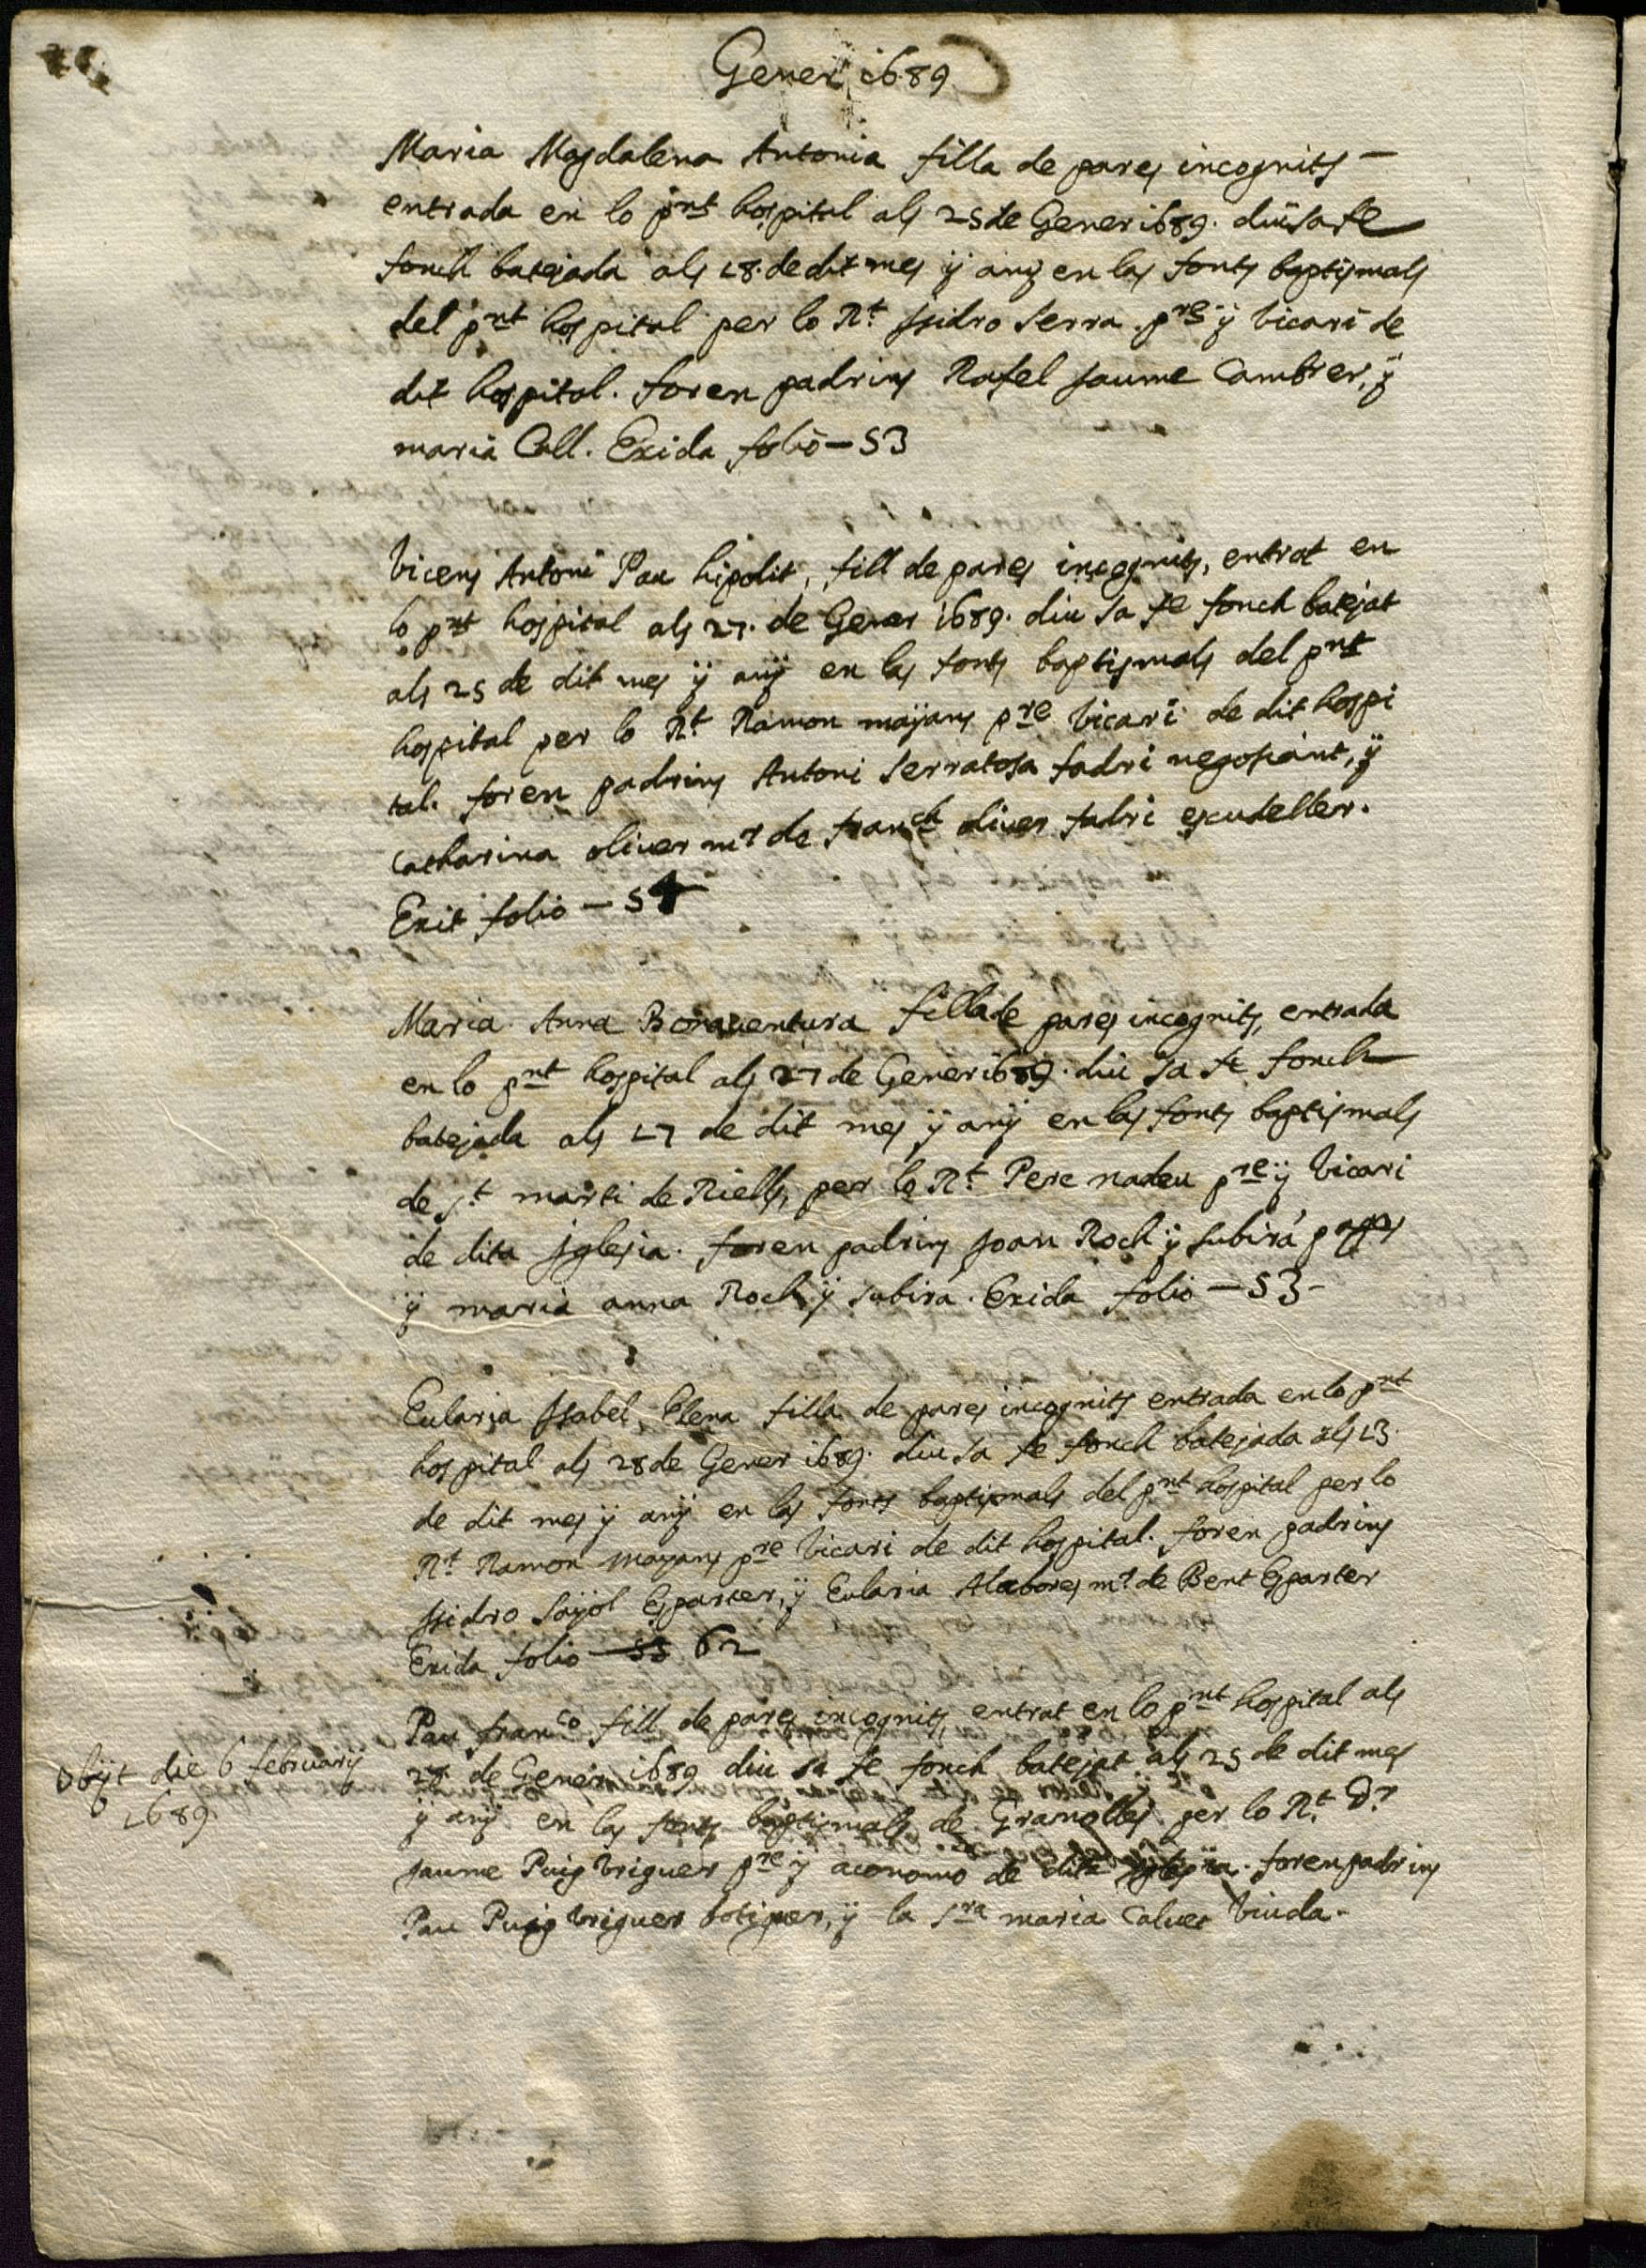 Gener 1689
Maria Magdalena Antonia filla de pares incognits
entrada en lo pnt hospital als 25 de Gener 1689. diu sa fe
fonch batejada als 18. de dit mes ÿ anÿ en las fonts baptismals
del pnt hospital per lo Rt Isidro Serra pre ÿ vicari de
dit hospital. foren padrins Rafel Jaume Cambrer, ÿ
maria Coll. Exida folio - 53
Vicens Antoni Pau hipolit, fill de pares incognits, entrat en
lo pnt hospital als 27. de Gener 1689. diu sa fe fonch batejat
als 25 de dit mes ÿ anÿ en las fonts baptismals del pnt
hospital per lo Rt Ramon maÿans pre vicari de dit hospi
tal. foren padrins Antoni Serratosa fadri negosiant, ÿ
Catharina oliver mr de franch oliver fadri escudeller.
Exit folio - 54
Maria Anna Bonaventura filla de pares incognits, entrada
en lo pnt hospital als 27 de Gener 1689. diu sa fe fonch
batejada als 17 de dit mes ÿ anÿ en las fonts baptismals
de st marti de Riells, per lo Rt Pere nadeu pre ÿ vicari
de dita Iglesia. foren padrins Joan Roch ÿ subirá pages
ÿ maria anna Roch ÿ subirá. Exida folio - 53-
Eularia Isabel, Elena filla de pares incognits entrada en lo pnt
hospital als 28 de Gener 1689. diu sa fe fonch batejada als 13.
de dit mes ÿ anÿ en las fonts baptismals del pnt hospital per lo
Rt Ramon mayans pre vicari de dit hospital. foren padrins
Isidro Saÿol Esparter, ÿ Eularia Alabores mr de Bent Esparter
Exida folio 53 62
Pau franco fill de pares incognits, entrat en lo pnt hospital als
28 de Gener 1689 diu sa fe fonch batejat als 25 de dit mes
ÿ anÿ en las fonts baptismals de Granolles per lo Rt Dr
Jaume Puig Vriguer pre ÿ aconomo de dita iglesia. foren padrins
Pau Puig Vriguer botiguer, ÿ la sra maria Calvet viuda.
Obijt die 6 februarij
1689.